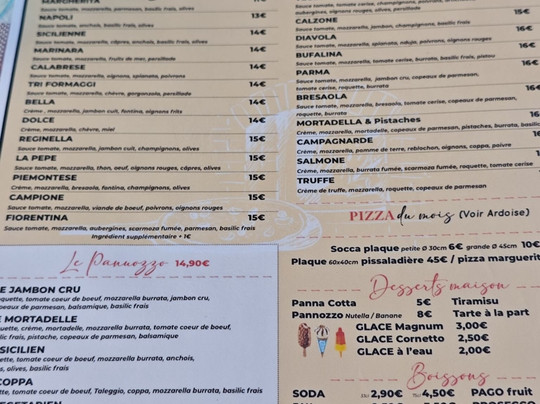 MARGHERITA
Sauce tomate, mozzarella, parmesan, basilic frais, olives
NAPOLI 13€
Sauce tomate, anchois, basilic frais, olives
SICILIENNE 14€
Sauce tomate, mozzarella, câpres, anchois, basilic frais, olives
MARINARA 14€
Sauce tomate, mozzarella, fruits de mer, persillade
CALABRESE 14€
Sauce tomate, mozzarella, oignons, spianata, poivrons
TRI FORMAGGI 14€
Sauce tomate, mozzarella, chèvre, gorgonzola, persillade
BELLA 14€
Crème, mozzarella, jambon cuit, fontina, oignons frits
DOLCE 14€
Crème, mozzarella, chèvre, miel
REGINELLA 15€
Sauce tomate, mozzarella, jambon cuit, champignons, olives
LA PEPE 15€
Sauce tomate, mozzarella, thon, oeuf, oignons rouges, câpres, olives
PIEMONTESE 15€
Crème, mozzarella, bresaola, fontina, champignons, olives
CAMPIONE 15€
Sauce tomate, mozzarella, viande de boeuf, poivrons, oignons rouges
FIORENTINA 15€
Sauce tomate, mozzarella, aubergines, scarmoza fumée, parmesan, basilic frais
Ingrédient supplémentaire + 1€
aubergines, oignons rouges, olives, persillade
CALZONE 15€
Sauce tomate, mozzarella, jambon, champignons, basilic frais
DIAVOLA 15€
Sauce tomate, mozzarella, spianata, nduja, poivrons, oignons rouges
BUFALINA 16€
Sauce tomate, mozzarella, tomate cerise, burrata, basilic frais, pistou
PARMA 16€
Sauce tomate, mozzarella, jambon cru, copeaux de parmesan,
tomate cerise, roquette, burrata
BRESAOLA
Sauce tomate, mozzarella, bresaola, tomate cerise, copeaux de parmesan,
roquette, burrata 16€
MORTADELLA & Pistaches
Crème, mozzarella, mortadelle, copeaux de parmesan, pistaches, burrata,
CAMPAGNARDE
Crème, mozzarella, pomme de terre, reblochon, oignons, coppa, poivre
SALMONE
Crème, mozzarella, burrata fumée, roquette, tomate cerise
TRUFFE
Crème de truffe, mozzarella, roquette, copeaux de parmesan
PIZZA du mois (Voir Ardoise)
Socca plaque petite Ø 30cm 6€ grande Ø 45cm 10€
Plaque 60x40cm pissaladière 45€ / pizza marguerit
Le Panuozzo 14,90€
E JAMBON CRU
quette, tomate coeur de boeuf, mozzarella burrata, jambon cru,
copeaux de parmesan, balsamique, basilic frais
E MORTADELLE
uette, crème, mortadelle, mozzarella burrata, tomate coeur de boeuf,
lic frais, pistache, copeaux de parmesan, balsamique
SICILIEN
ette, tomate coeur de boeuf, mozzarella burrata, anchois,
s, olives, basilic frais
COPPA
ette, tomate coeur de boeuf, Taleggio, coppa, mozzarella burrata, basilic frais
EGETARIEN
Desserts maison
Panna Cotta 5€ Tiramisu
Pannozzo Nutella / Banane 8€ Tarte à la part
GLACE Magnum 3,00€
GLACE Cornetto 2,50€
GLACE à l'eau 2,00€
Boissons
SODA 2,90€ 4,50€ PAGO fruit
PROSECCO